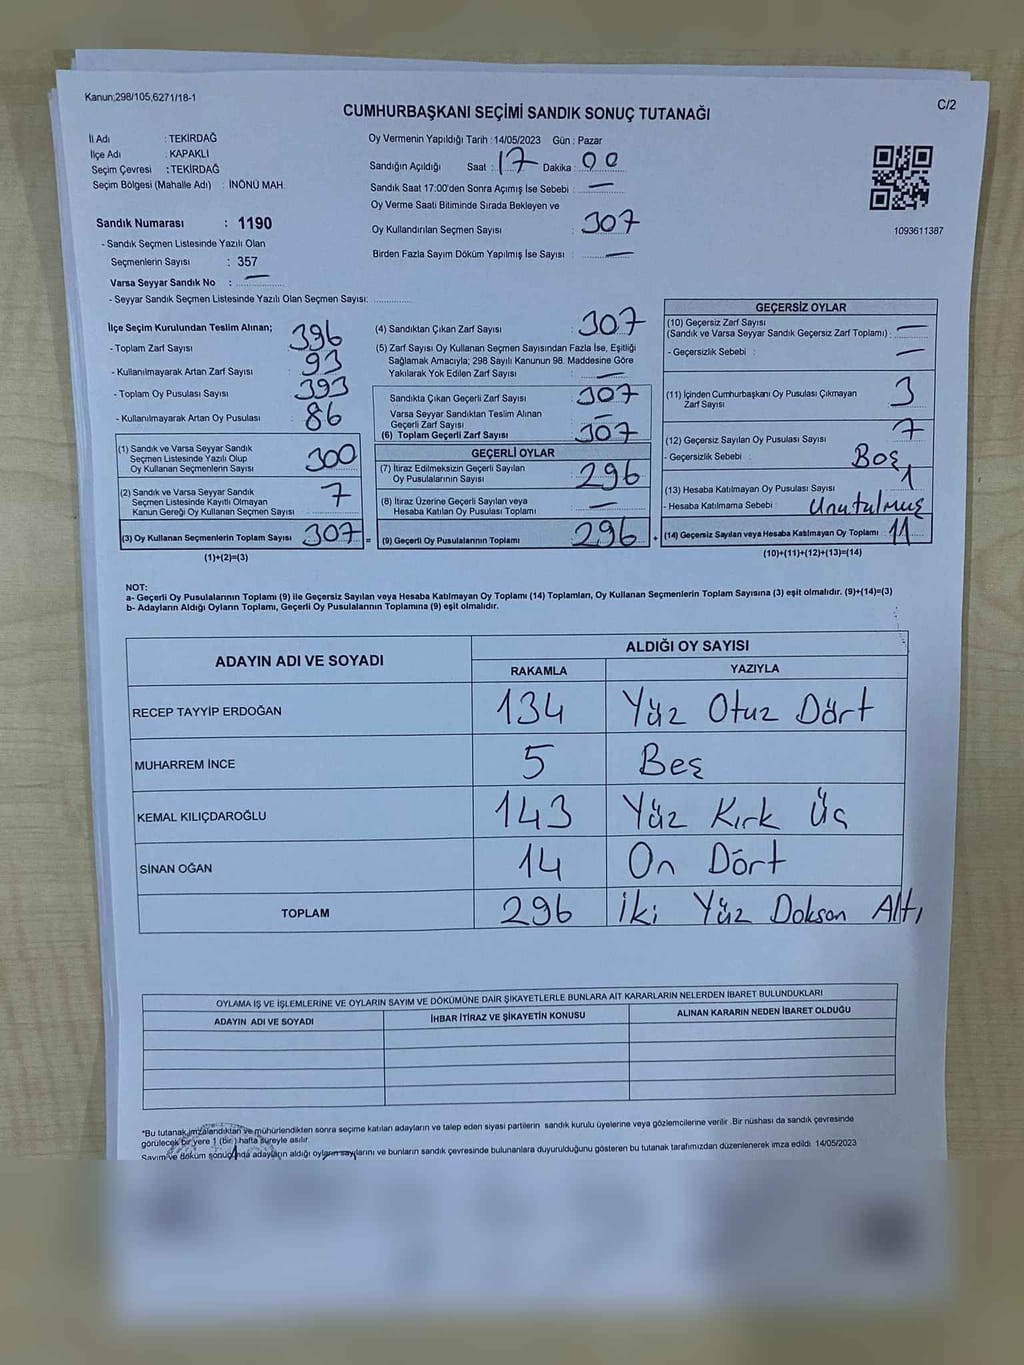 Kanun;298/105,6271/18-1
C/2
CUMHURBAŞKANI SEÇİMİ SANDIK SONUÇ TUTANAĞI
İl Adı : TEKİRDAĞ
İlçe Adı : KAPAKLI
Seçim Çevresi : TEKİRDAĞ
Seçim Bölgesi (Mahalle Adı) : İNÖNÜ MAH.
Oy Vermenin Yapıldığı Tarih : 14/05/2023 Gün : Pazar
Sandığın Açıldığı Saat : 17 Dakika : 00
Sandık Saat 17:00'den Sonra Açımış İse Sebebi : —
Oy Verme Saati Bitiminde Sırada Bekleyen ve
Oy Kullandırılan Seçmen Sayısı : 307
Birden Fazla Sayım Döküm Yapılmış İse Sayısı : —
1093611387
Sandık Numarası : 1190
- Sandık Seçmen Listesinde Yazılı Olan
Seçmenlerin Sayısı : 357
Varsa Seyyar Sandık No : —
- Seyyar Sandık Seçmen Listesinde Yazılı Olan Seçmen Sayısı: ............
İlçe Seçim Kurulundan Teslim Alınan;
- Toplam Zarf Sayısı 396
- Kullanılmayarak Artan Zarf Sayısı 93
- Toplam Oy Pusulası Sayısı 393
- Kullanılmayarak Artan Oy Pusulası 86
(1) Sandık ve Varsa Seyyar Sandık
Seçmen Listesinde Yazılı Olup
Oy Kullanan Seçmenlerin Sayısı 300
(2) Sandık ve Varsa Seyyar Sandık
Seçmen Listesinde Kayıtlı Olmayan
Kanun Gereği Oy Kullanan Seçmen Sayısı 7
(3) Oy Kullanan Seçmenlerin Toplam Sayısı 307 =
(1)+(2)=(3)
(4) Sandıktan Çıkan Zarf Sayısı : 307
(5) Zarf Sayısı Oy Kullanan Seçmen Sayısından Fazla İse, Eşitliği
Sağlamak Amacıyla; 298 Sayılı Kanunun 98. Maddesine Göre
Yakılarak Yok Edilen Zarf Sayısı : —
Sandıkta Çıkan Geçerli Zarf Sayısı : 307
Varsa Seyyar Sandıktan Teslim Alınan
Geçerli Zarf Sayısı : —
(6) Toplam Geçerli Zarf Sayısı : 307
GEÇERLİ OYLAR
(7) İtiraz Edilmeksizin Geçerli Sayılan
Oy Pusulalarının Sayısı : 296
(8) İtiraz Üzerine Geçerli Sayılan veya
Hesaba Katılan Oy Pusulası Toplamı : —
(9) Geçerli Oy Pusulalarının Toplamı : 296 +
GEÇERSİZ OYLAR
(10) Geçersiz Zarf Sayısı
(Sandık ve Varsa Seyyar Sandık Geçersiz Zarf Toplamı) : —
- Geçersizlik Sebebi : —
(11) İçinden Cumhurbaşkanı Oy Pusulası Çıkmayan
Zarf Sayısı 3
(12) Geçersiz Sayılan Oy Pusulası Sayısı : 7
- Geçersizlik Sebebi : Boş
(13) Hesaba Katılmayan Oy Pusulası Sayısı : 1
- Hesaba Katılmama Sebebi : Unutulmuş
(14) Geçersiz Sayılan veya Hesaba Katılmayan Oy Toplamı : 11
(10)+(11)+(12)+(13)=(14)
NOT:
a- Geçerli Oy Pusulalarının Toplamı (9) ile Geçersiz Sayılan veya Hesaba Katılmayan Oy Toplamı (14) Toplamları, Oy Kullanan Seçmenlerin Toplam Sayısına (3) eşit olmalıdır. (9)+(14)=(3)
b- Adayların Aldığı Oyların Toplamı, Geçerli Oy Pusulalarının Toplamına (9) eşit olmalıdır.
ADAYIN ADI VE SOYADI
ALDIĞI OY SAYISI
RAKAMLA YAZIYLA
RECEP TAYYİP ERDOĞAN 134 Yüz Otuz Dört
MUHARREM İNCE 5 Beş
KEMAL KILIÇDAROĞLU 143 Yüz Kırk Üç
SİNAN OĞAN 14 On Dört
TOPLAM 296 İki Yüz Doksan Altı
OYLAMA İŞ VE İŞLEMLERİNE VE OYLARIN SAYIM VE DÖKÜMÜNE DAİR ŞİKAYETLERLE BUNLARA AİT KARARLARIN NELERDEN İBARET BULUNDUKLARI
ADAYIN ADI VE SOYADI İHBAR İTİRAZ VE ŞİKAYETİN KONUSU ALINAN KARARIN NEDEN İBARET OLDUĞU
*Bu tutanak,imzalandıktan ve mühürlendikten sonra seçime katılan adayların ve talep eden siyasi partilerin sandık kurulu üyelerine veya gözlemcilerine verilir .Bir nüshası da sandık çevresinde
görülecek bir yere 1 (bir ) hafta süreyle asılır.
Sayım ve döküm sonucunda adayların aldığı oyların sayılarını ve bunların sandık çevresinde bulunanlara duyurulduğunu gösteren bu tutanak tarafımızdan düzenlenerek imza edildi. 14/05/2023